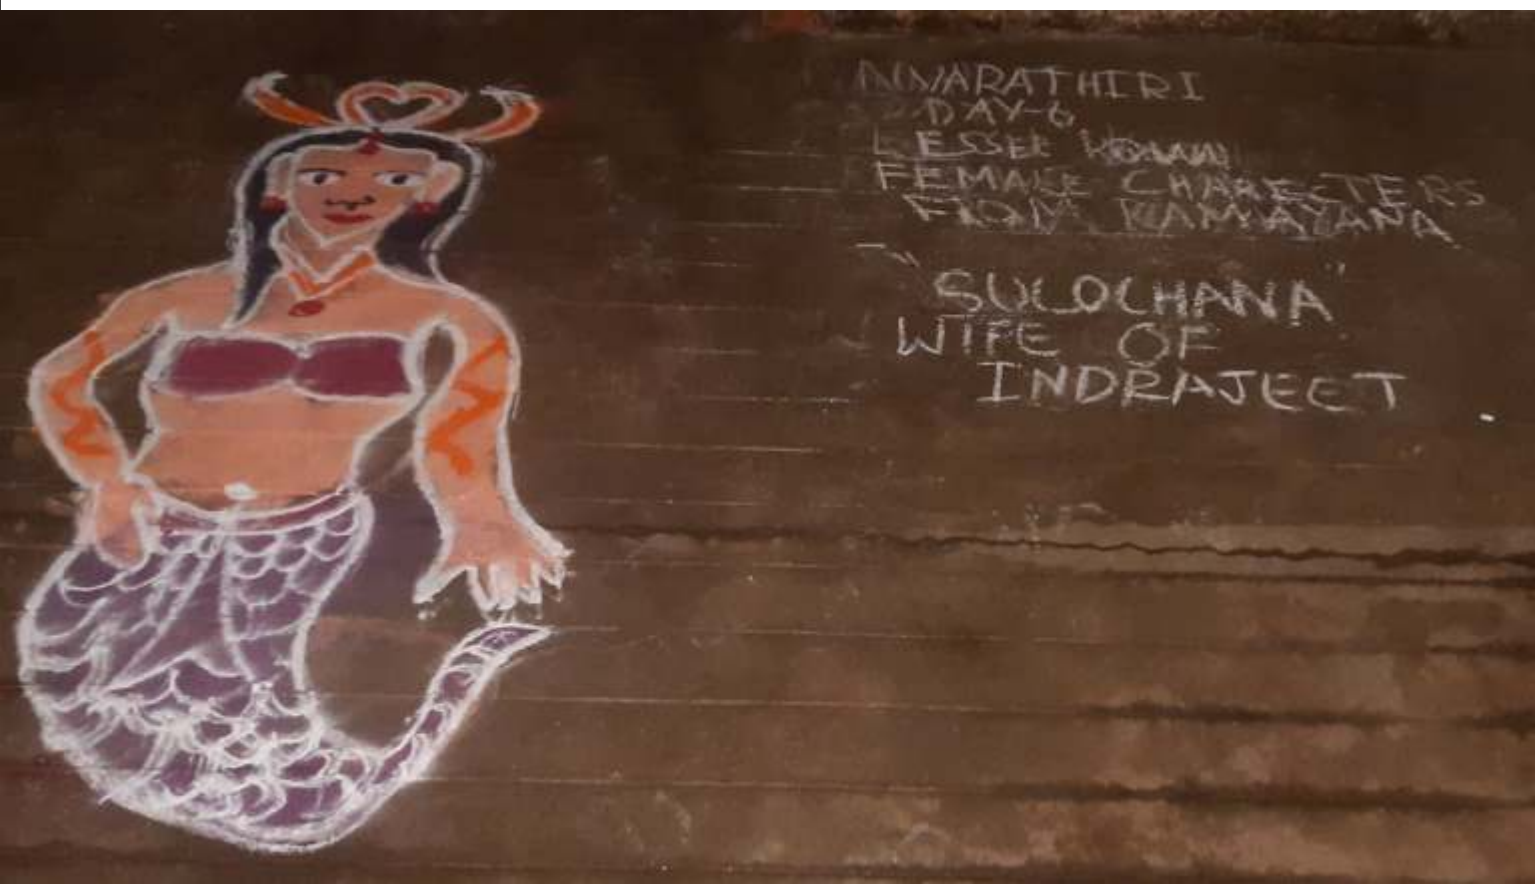 NVARATHIRI
DAY-6
LESSER KOWN
FEMALE CHARECTERS
FROM RAMAYANA
"SULOCHANA"
WIFE OF
INDRAJEET